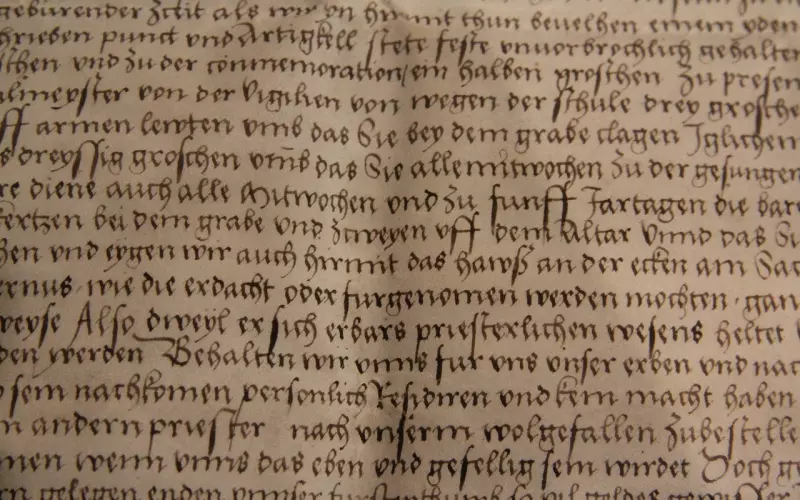 geburender Zceit als wir yn hirmit thun bevelhen einem yden
schrieben punct und Artigkell stete feste unvorbrochlich gehalten
schen und zu der commemoration ein halben groschen zu presen
almeyster von der Vigilien von wegen der schule drey grosche
ff armen lewten umb das Sie bey dem grabe clagen Iglichem
s dreyssig groschen umb das Sie alle mitwochen zu der gesungen
re diene auch alle Mitwochen und zu funff Jartagen die bare
kertzen bei dem grabe und zcweyen uff dem Altar Unnd das Si
hen und eygen wir auch hirmit das hawß an der ecken am Sac
ernus wie die erdacht oder furgenomen werden mochten gan
weyse Also dweyl er sich erbars priesterlichen wesens heltet
den werden Behalten wir unns fur uns unser erben und nac
sein nachkomen personlich Residiren und kein macht haben
n andern priester nach unserm wolgefallen zubestelle
men wenn unns das eben und gefellig sein wirdet Doch ge
gelegen enden unnser